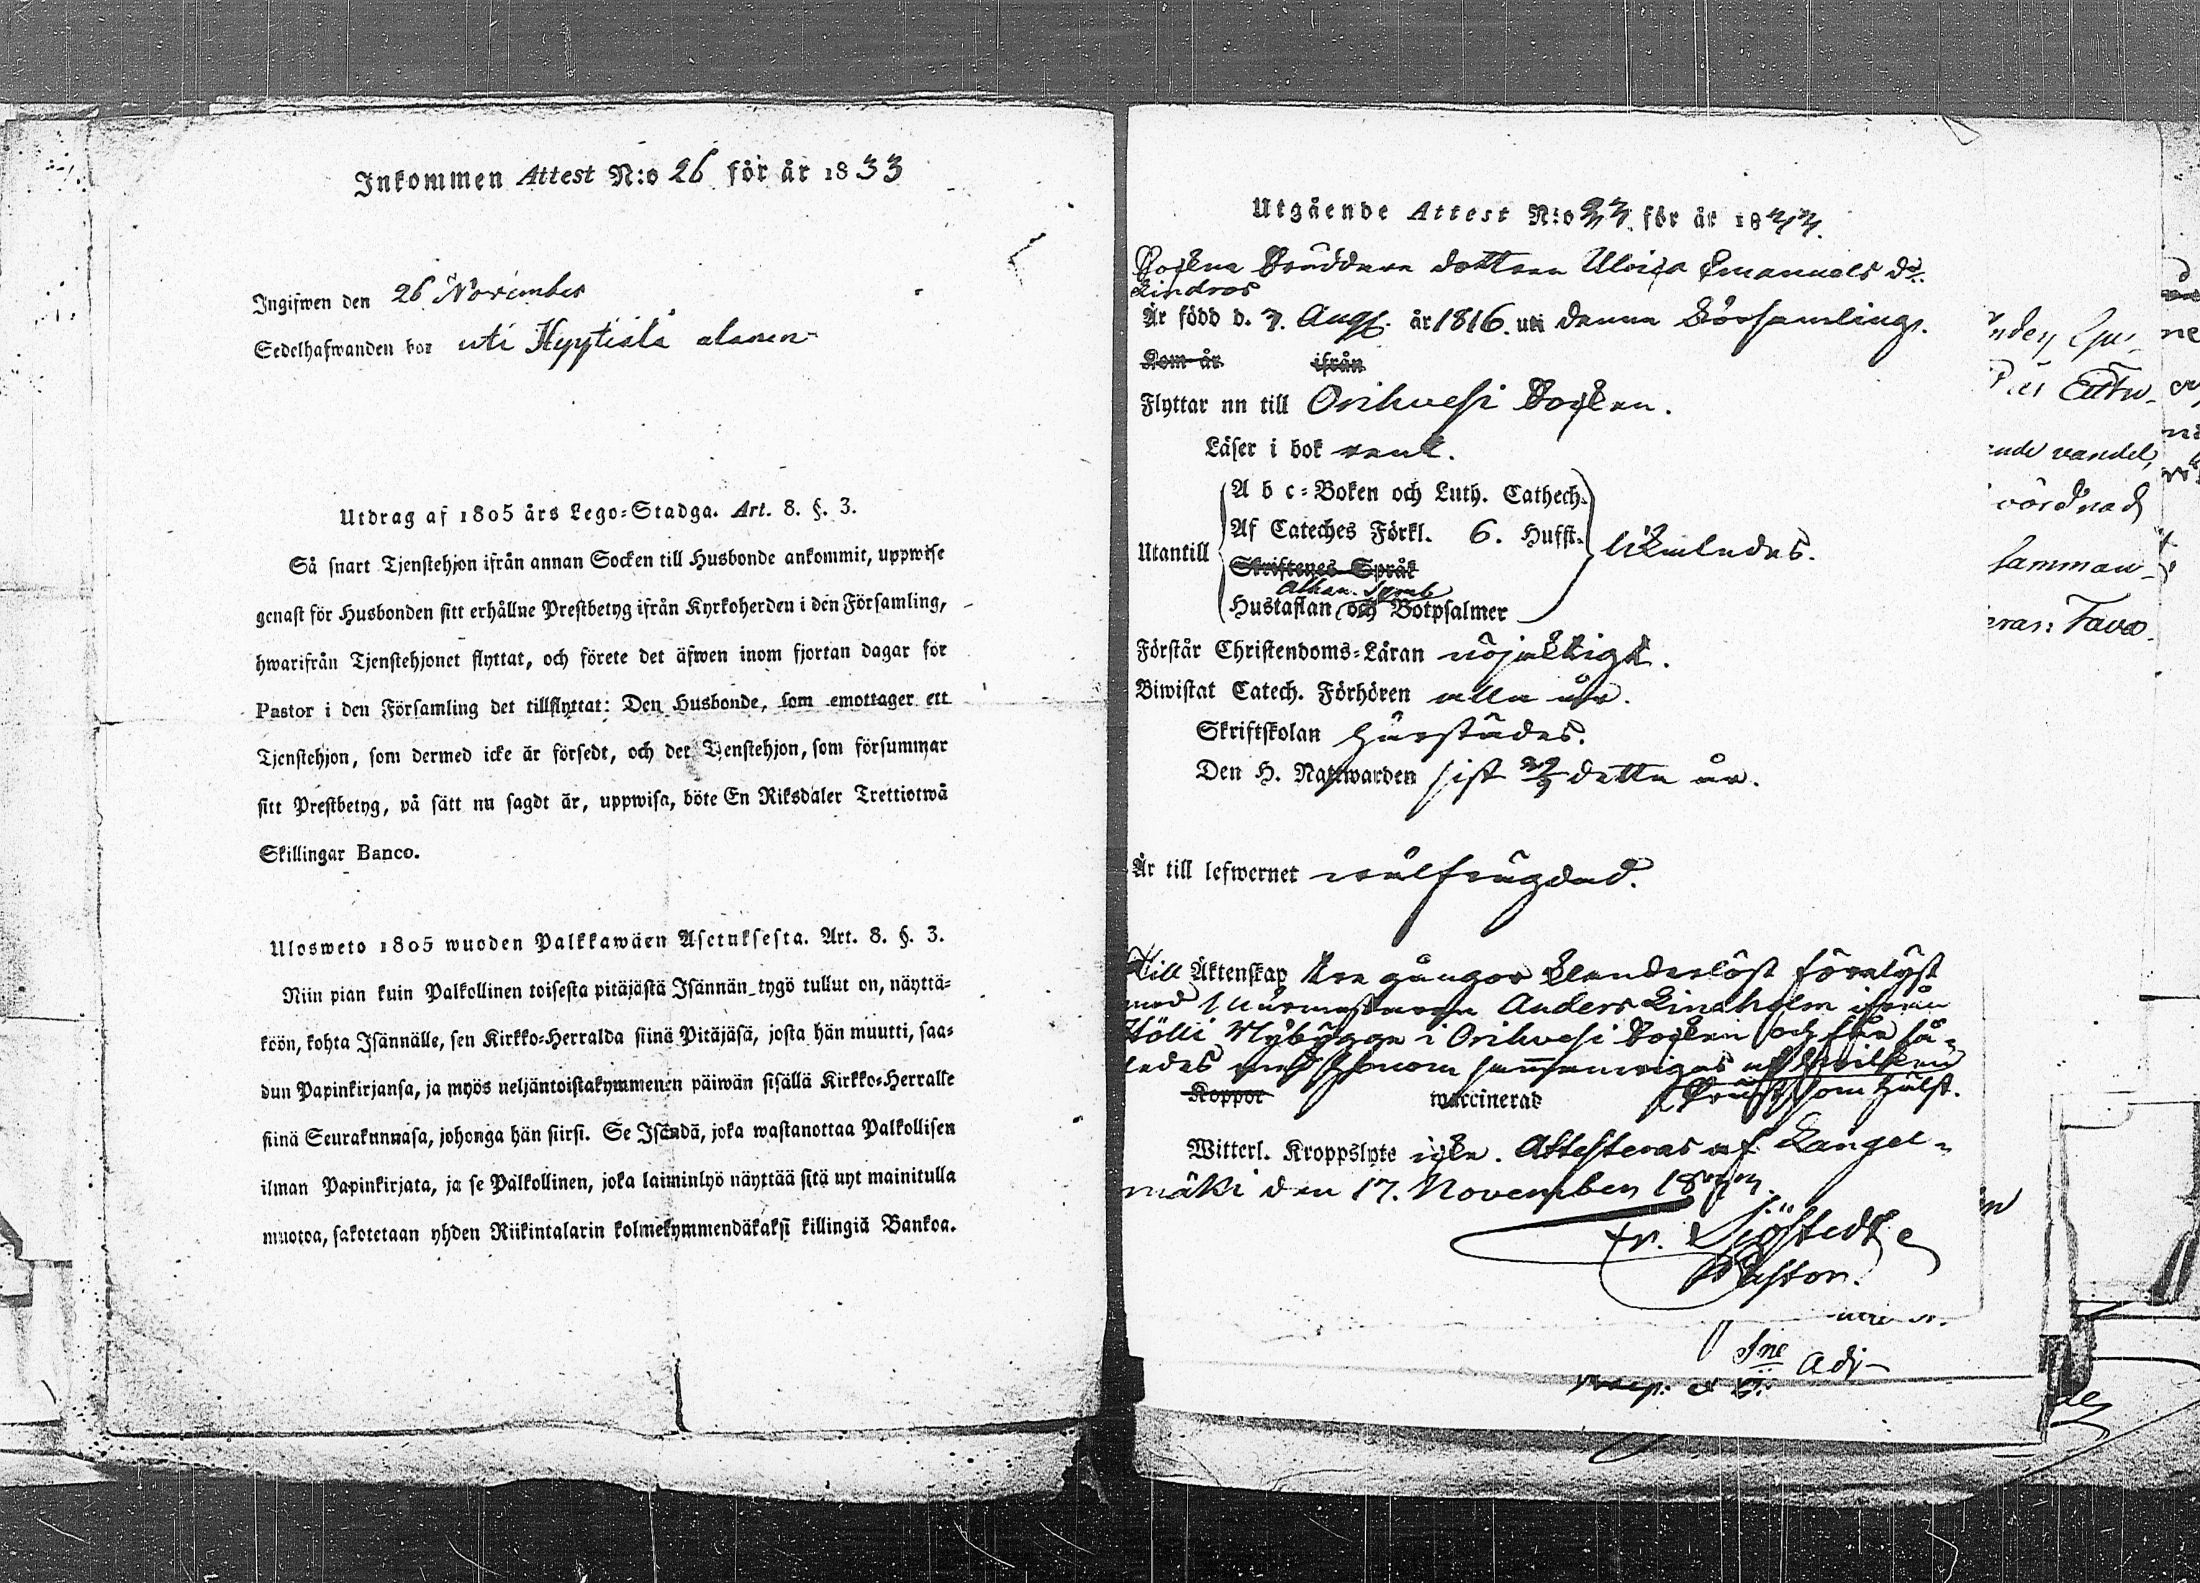 Inkommen Attest N:o 26 för år 1833
Ingifwen den 26 November
Sedelhafwanden bor uti Hyytiälä
Utdrag af 1805 års Lego-Stadga. Art. 8. §. 3.
Så snart Tjenstehjon ifrån annan Socken till Husbonde ankommit, uppwise
genast för Husbonden sitt erhållne Prestbetyg ifrån Kyrkoherden i den Församling,
hwarifrån Tjenstehjonet flyttat, och förete det äfwen inom fjortan dagar för
Pastor i den Församling det tillflyttat: Den Husbonde, som emottager ett
Tjenstehjon, som dermed icke är försedt, och det Tjenstehjon, som försummar
sitt Prestbetyg, på sätt nu sagdt är, uppwisa, böte En Riksdaler Trettiotwå
Skillingar Banco.
Ulosweto 1805 wuoden Palkkawäen Asetuksesta. Art. 8. §. 3.
Niin pian kuin Palkollinen toisesta pitäjästä Isännän tygö tullut on, näyttä-
köön, kohta Isännälle, sen Kirkko-Herralda siinä Pitäjäsä, josta hän muutti, saa-
dun Papinkirjansa, ja myös neljäntoistakymmenen päiwän sisällä Kirkko-Herralle
siinä Seurakunnasa, johonga hän siirsi. Se Isändä, joka wastanottaa Palkollisen
ilman Papinkirjata, ja se Palkollinen, joka laiminlyö näyttää sitä nyt mainitulla
muotoa, sakotetaan yhden Riikintalarin kolmekymmendäkaksi killingiä Bankoa.
Utgående Attest N:o 33. för år 1833.
Sockne Skräddare dottren Ulrica Emanuels dr.
Lindroos
Är född d. 3. Aug. år 1816. uti denna Församling.
Kom år ifrån
Flyttar nu till Orihvesi Socken.
Läser i bok rent.
A b c-Boken och Luth. Cathech.
Af Cateches Förkl. 6. Hufst.
Utantill likaledes.
Skriftenes Språk
Athan. Symb
Hustaflan och Botpsalmer
Förstår Christendoms-Läran nöjaktigt.
Biwistat Catech. Förhören alla år.
Skriftskolan härstädes.
Den H. Nattwarden sist detta år.
Är till lefwernet wälfrägdad.
Till Äktenskap tre gångor klanderlöst förelyst
med Anders Lindholm ifrån
Hölli Nybygge i Orihvesi Socken och får så-
ledes med honom sammanvigas af hvilken
Präst som hälst.
Koppor waccinerad
Witterl. Kroppslyte icke. Attesteras af Längel-
mäki den 17. November 1833.
Fr. Sjöstedt
Pastor.
nden
vandel,
vördnad
samman-
Adj-